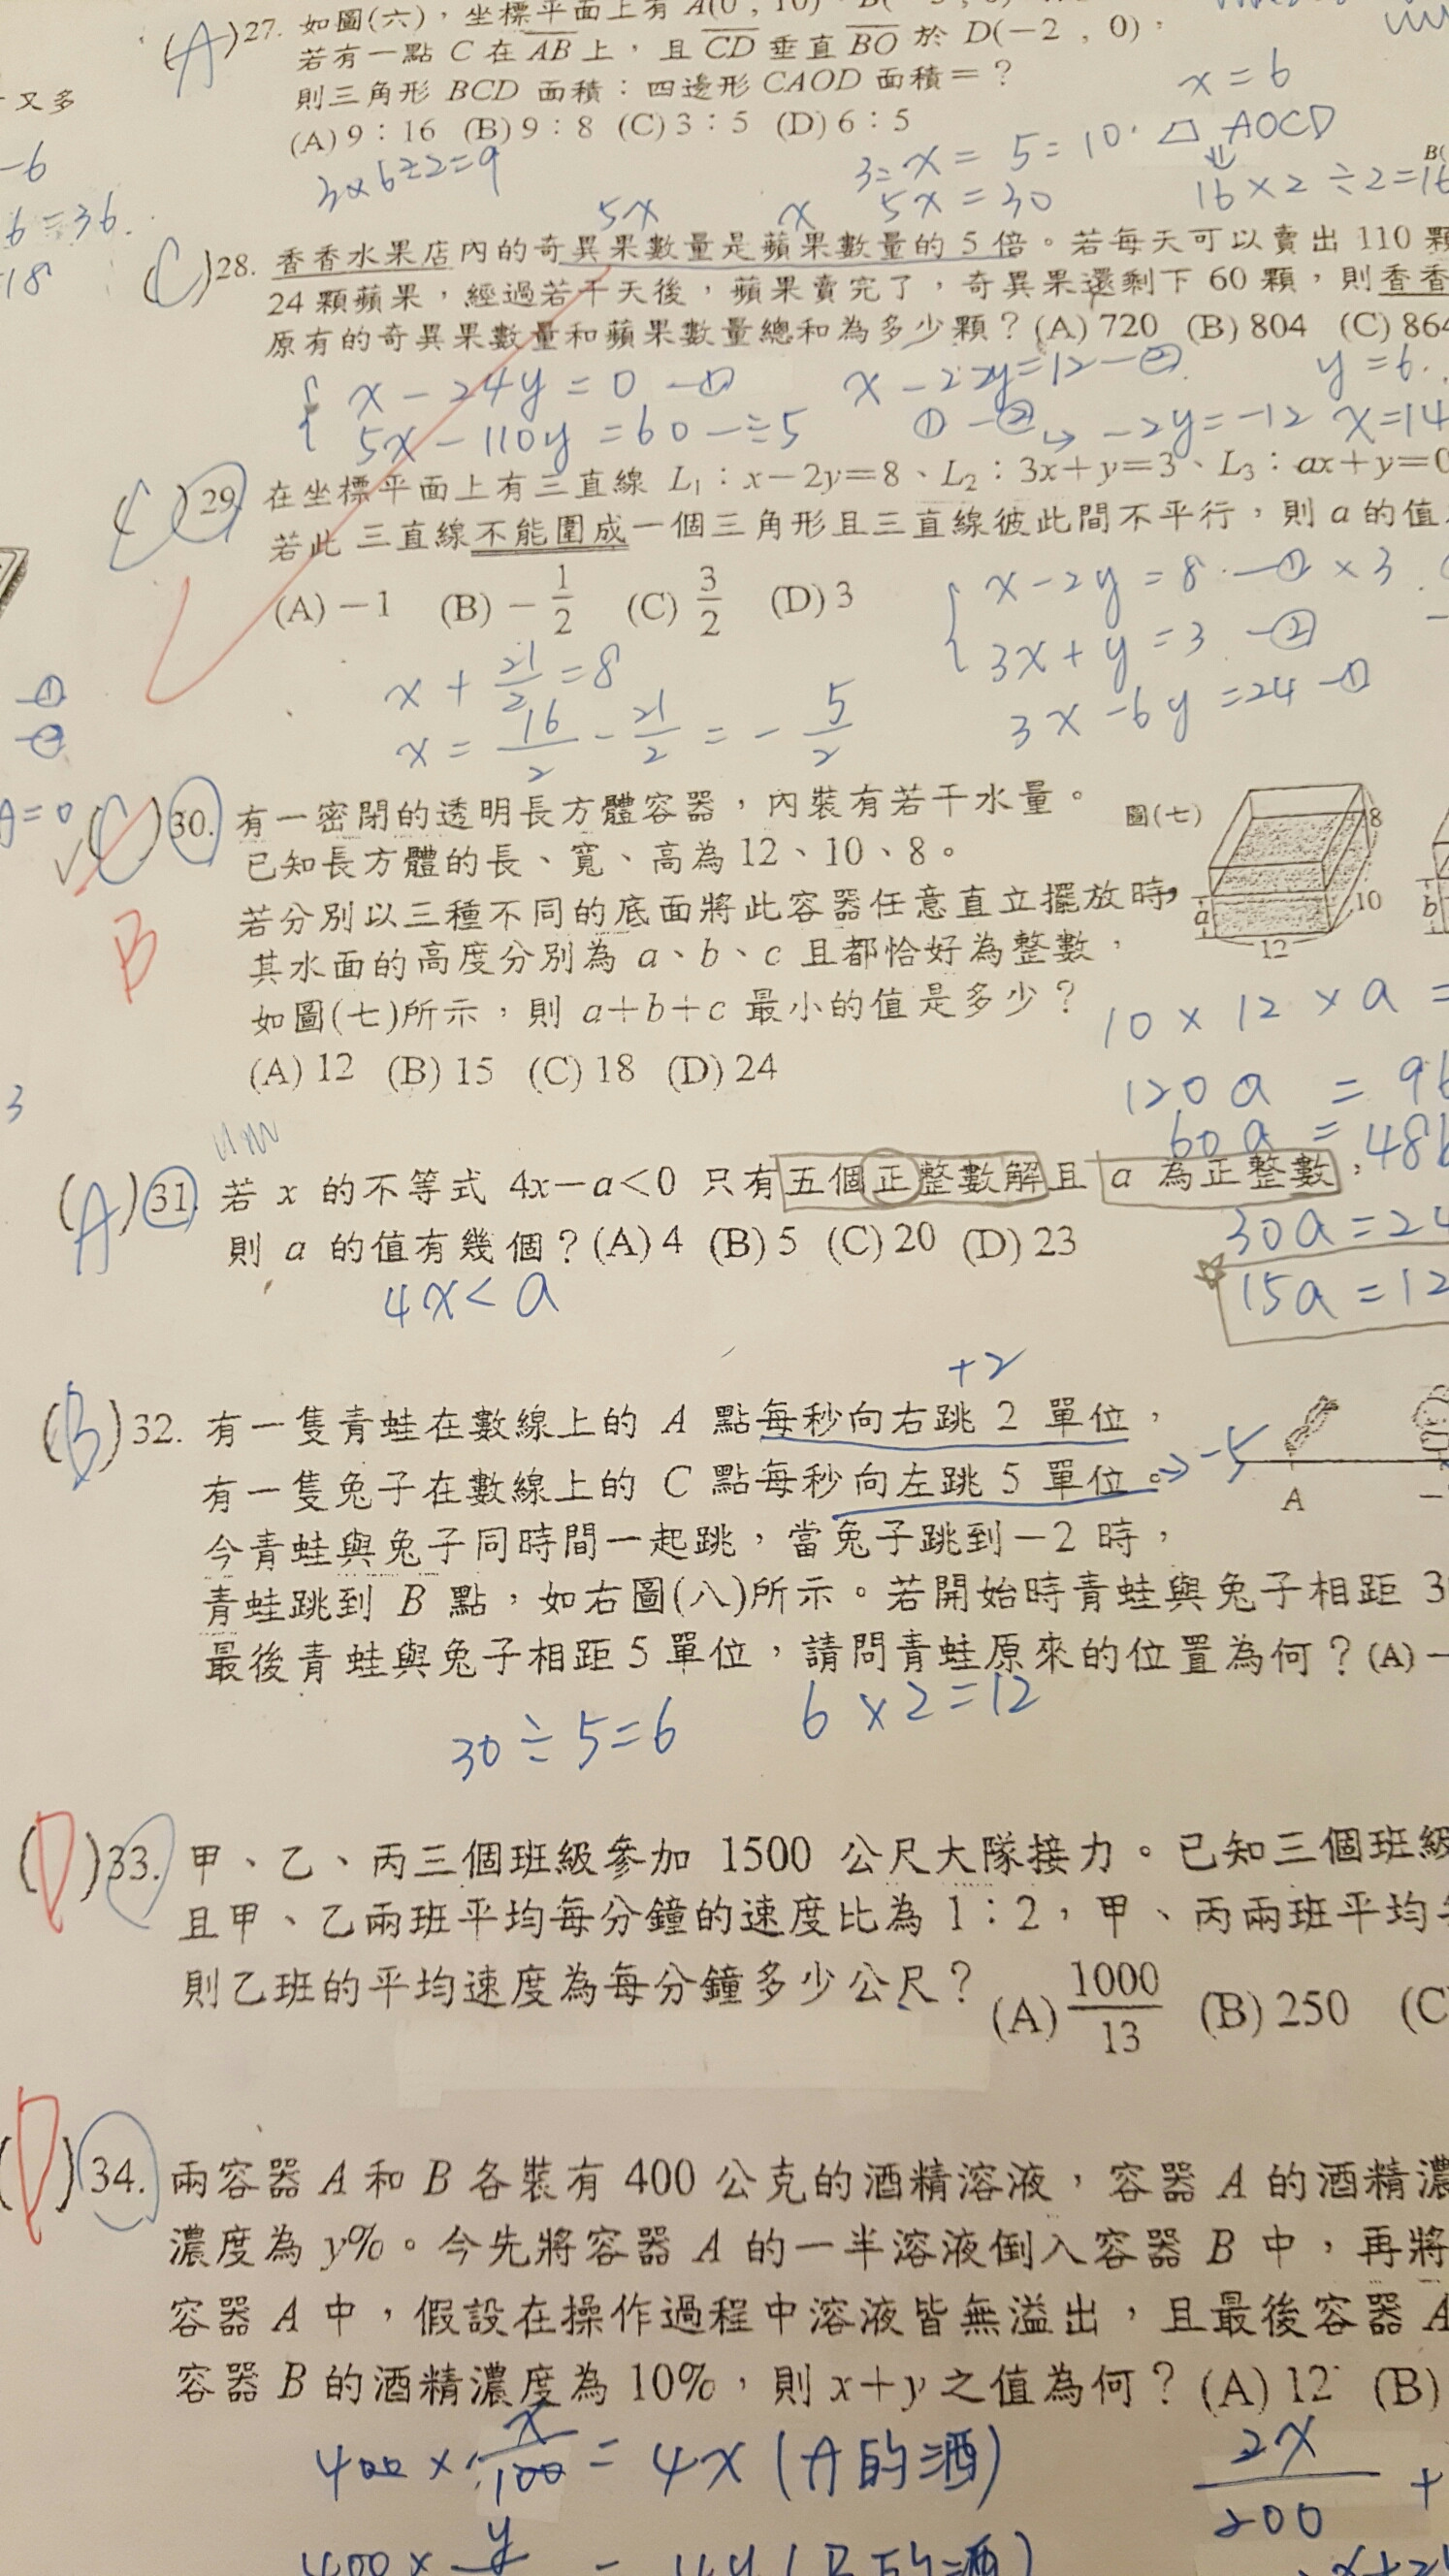 (A)27. 如圖(六)，坐標平面上有 A(0，10)、B(
若有一點 C 在 AB 上，且 CD 垂直 BO 於 D(−2，0)，
則三角形 BCD 面積：四邊形 CAOD 面積＝？
x = 6
又多
(A) 9：16 (B) 9：8 (C) 3：5 (D) 6：5
AOCD
3×6÷2=9
3=x = 5=10
5x = 30
16×2÷2=16
B(
−6
6=36.
18
5x
x
(C)28. 香香水果店內的奇異果數量是蘋果數量的 5 倍。若每天可以賣出 110 顆
24 顆蘋果，經過若干天後，蘋果賣完了，奇異果還剩下 60 顆，則香香
原有的奇異果數量和蘋果數量總和為多少顆？(A) 720 (B) 804 (C) 864
x−24y=0 −①
5x−110y=60 −÷5
x−22y=12−②
①−②→ −2y=−12
y=6.
x=14
(C)29. 在坐標平面上有三直線 L1：x−2y=8、L2：3x+y=3、L3：ax+y=0
若此三直線不能圍成一個三角形且三直線彼此間不平行，則 a 的值
(A) −1 (B) −1/2 (C) 3/2 (D) 3
x−2y=8 −①×3
3x+y=3 −②
3x−6y=24 −①
x+21/2=8
x=16/2−21/2=−5/2
−①
−②
A=0
(C)30. 有一密閉的透明長方體容器，內裝有若干水量。
已知長方體的長、寬、高為 12、10、8。
若分別以三種不同的底面將此容器任意直立擺放時，
其水面的高度分別為 a、b、c 且都恰好為整數，
如圖(七)所示，則 a+b+c 最小的值是多少？
(A) 12 (B) 15 (C) 18 (D) 24
B
圖(七)
8
10
12
a
b
10×12×a=
120a = 96
60a = 48b
30a=24
15a=12
3
(A)31. 若 x 的不等式 4x−a<0 只有五個正整數解且 a 為正整數，
則 a 的值有幾個？(A) 4 (B) 5 (C) 20 (D) 23
4x<a
+2
(B)32. 有一隻青蛙在數線上的 A 點每秒向右跳 2 單位，
有一隻兔子在數線上的 C 點每秒向左跳 5 單位。→−5
今青蛙與兔子同時間一起跳，當兔子跳到−2 時，
青蛙跳到 B 點，如右圖(八)所示。若開始時青蛙與兔子相距 3
最後青蛙與兔子相距 5 單位，請問青蛙原來的位置為何？(A) −
A
30÷5=6
6×2=12
(D)33. 甲、乙、丙三個班級參加 1500 公尺大隊接力。已知三個班級
且甲、乙兩班平均每分鐘的速度比為 1：2，甲、丙兩班平均
則乙班的平均速度為每分鐘多少公尺？ (A) 1000/13 (B) 250 (C
(D)34. 兩容器 A 和 B 各裝有 400 公克的酒精溶液，容器 A 的酒精濃
濃度為 y%。今先將容器 A 的一半溶液倒入容器 B 中，再將
容器 A 中，假設在操作過程中溶液皆無溢出，且最後容器 A
容器 B 的酒精濃度為 10%，則 x+y 之值為何？(A) 12 (B)
400×x/100=4x (A的酒)
2x/200 +